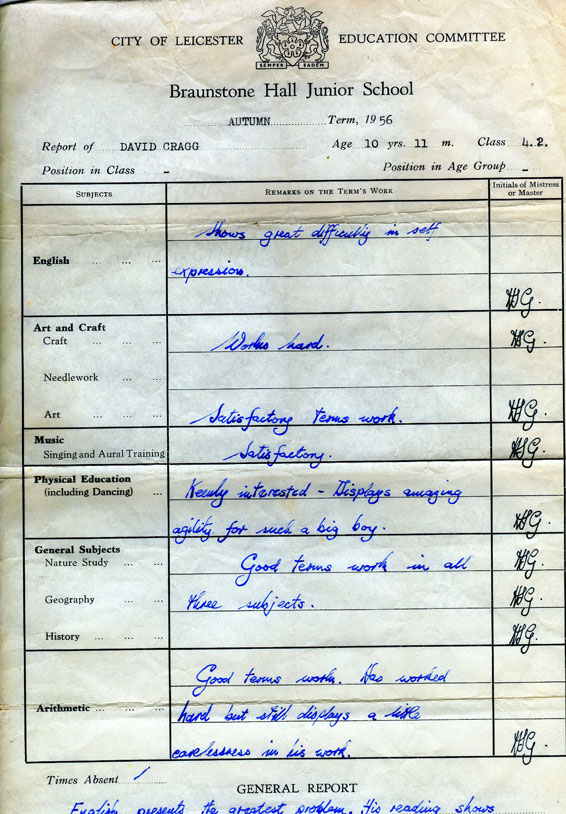 CITY OF LEICESTER EDUCATION COMMITTEE
SEMPER EADEM
Braunstone Hall Junior School
AUTUMN Term, 1956
Report of DAVID CRAGG Age 10 yrs. 11 m. Class 4.2.
Position in Class - Position in Age Group -
SUBJECTS REMARKS ON THE TERM'S WORK Initials of Mistress or Master
Shows great difficulty in self
English ... ... ... expression.
HG.
Art and Craft
Craft ... ... ... Works hard. HG.
Needlework ... ...
Art ... ... ... Satisfactory terms work. HG.
Music
Singing and Aural Training Satisfactory. HG.
Physical Education
(including Dancing) ... Keenly interested - Displays amazing
agility for such a big boy. HG.
General Subjects
Nature Study ... ... Good terms work in all HG.
Geography ... ... three subjects. HG.
History ... ... ... HG.
Good terms work. Has worked
Arithmetic ... ... ... hard but still displays a little
carelessness in his work. HG.
Times Absent /
GENERAL REPORT
English presents the greatest problem. His reading shows